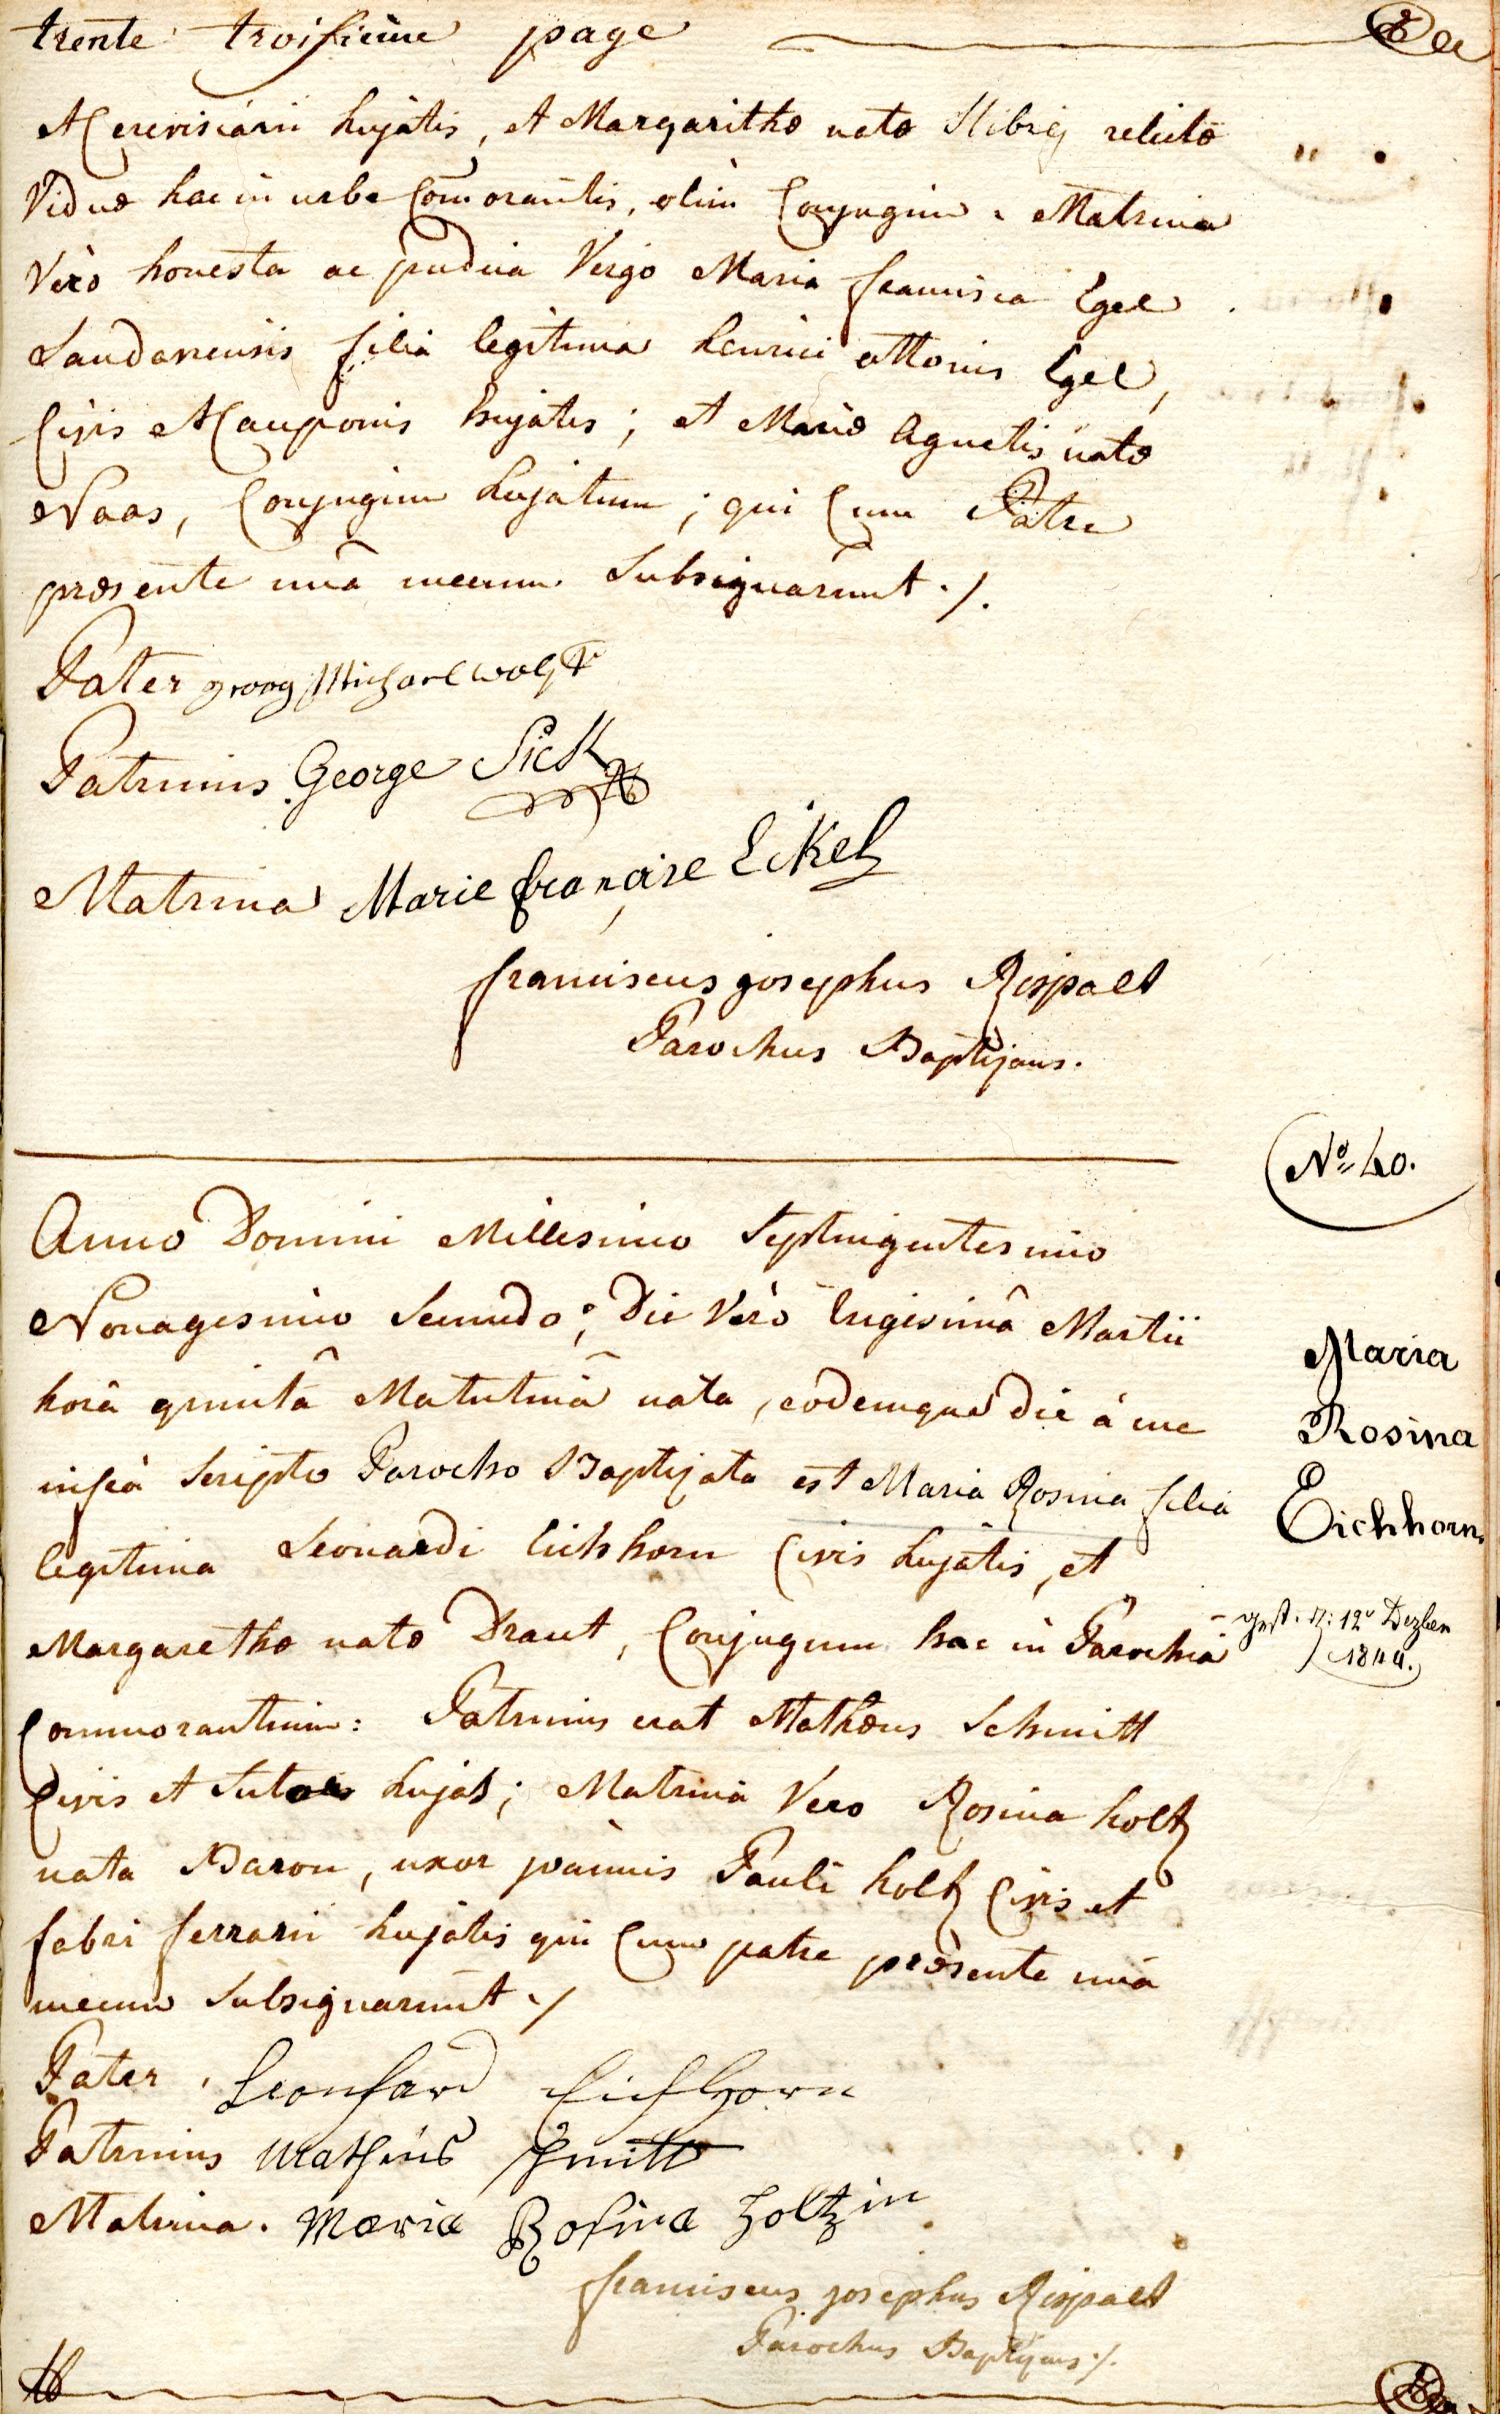 trente troisieme page
et Cerevisiarii hujatis, et Margarithæ natæ relictæ
Viduæ hac in urbe Com̄orantis, olim Conjugum. Matrina
Verò honesta ac pudica Virgo Maria francisca Egel
Landaviensis filia legitima henrici ottonis Egel,
Civis et Cauponis hujatis; et Mariæ Agnetis natæ
Naas, Conjugum hujatum; qui Cum Patre
præsente unâ mecum Subsignarunt ./.
Pater Georg Michael Wolff
Patrinus George Sick
Matrina Marie françoise Eikel
franciscus josephus Rispalt
Parochus Baptizans.
N° 40.
Anno Domini Millesimo Septingentesimo
Nonagesimo Secundo; Die Verò Trigesimâ Martii
horâ quintâ Matutinâ nata, eodemque die à me
infrà Scripto Parocho Baptizata est Maria Rosina filia
legitima Leonardi Eichhorn Civis hujatis, et
Margarethæ natæ Draut, Conjugum hac in Parochiâ
Commorantium: Patrinus erat Mathæus Schmitt
Civis et Sutor hujas; Matrina Vero Rosina holtz
nata Baron, uxor joannis Pauli holtz Civis et
fabri ferrarii hujatis qui Cum patre præsente unâ
mecum Subsignarunt ./
Maria
Rosina
Eichhorn
gest. d: 12 Dezber
1844.
Pater Leonhard Eichhorn
Patrinus Matheus Schmitt
Matrina. Maria Rosina Holtzin
franciscus josephus Rispalt
Parochus Baptizans ./.